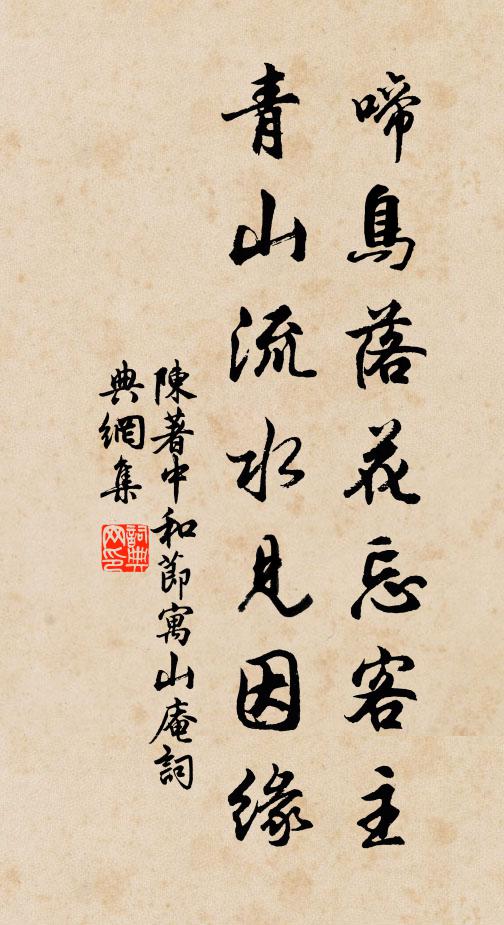 啼鳥落花忘客主
青山流水見因緣
陳著中和節寓山庵詞
典網集
詞典
网印